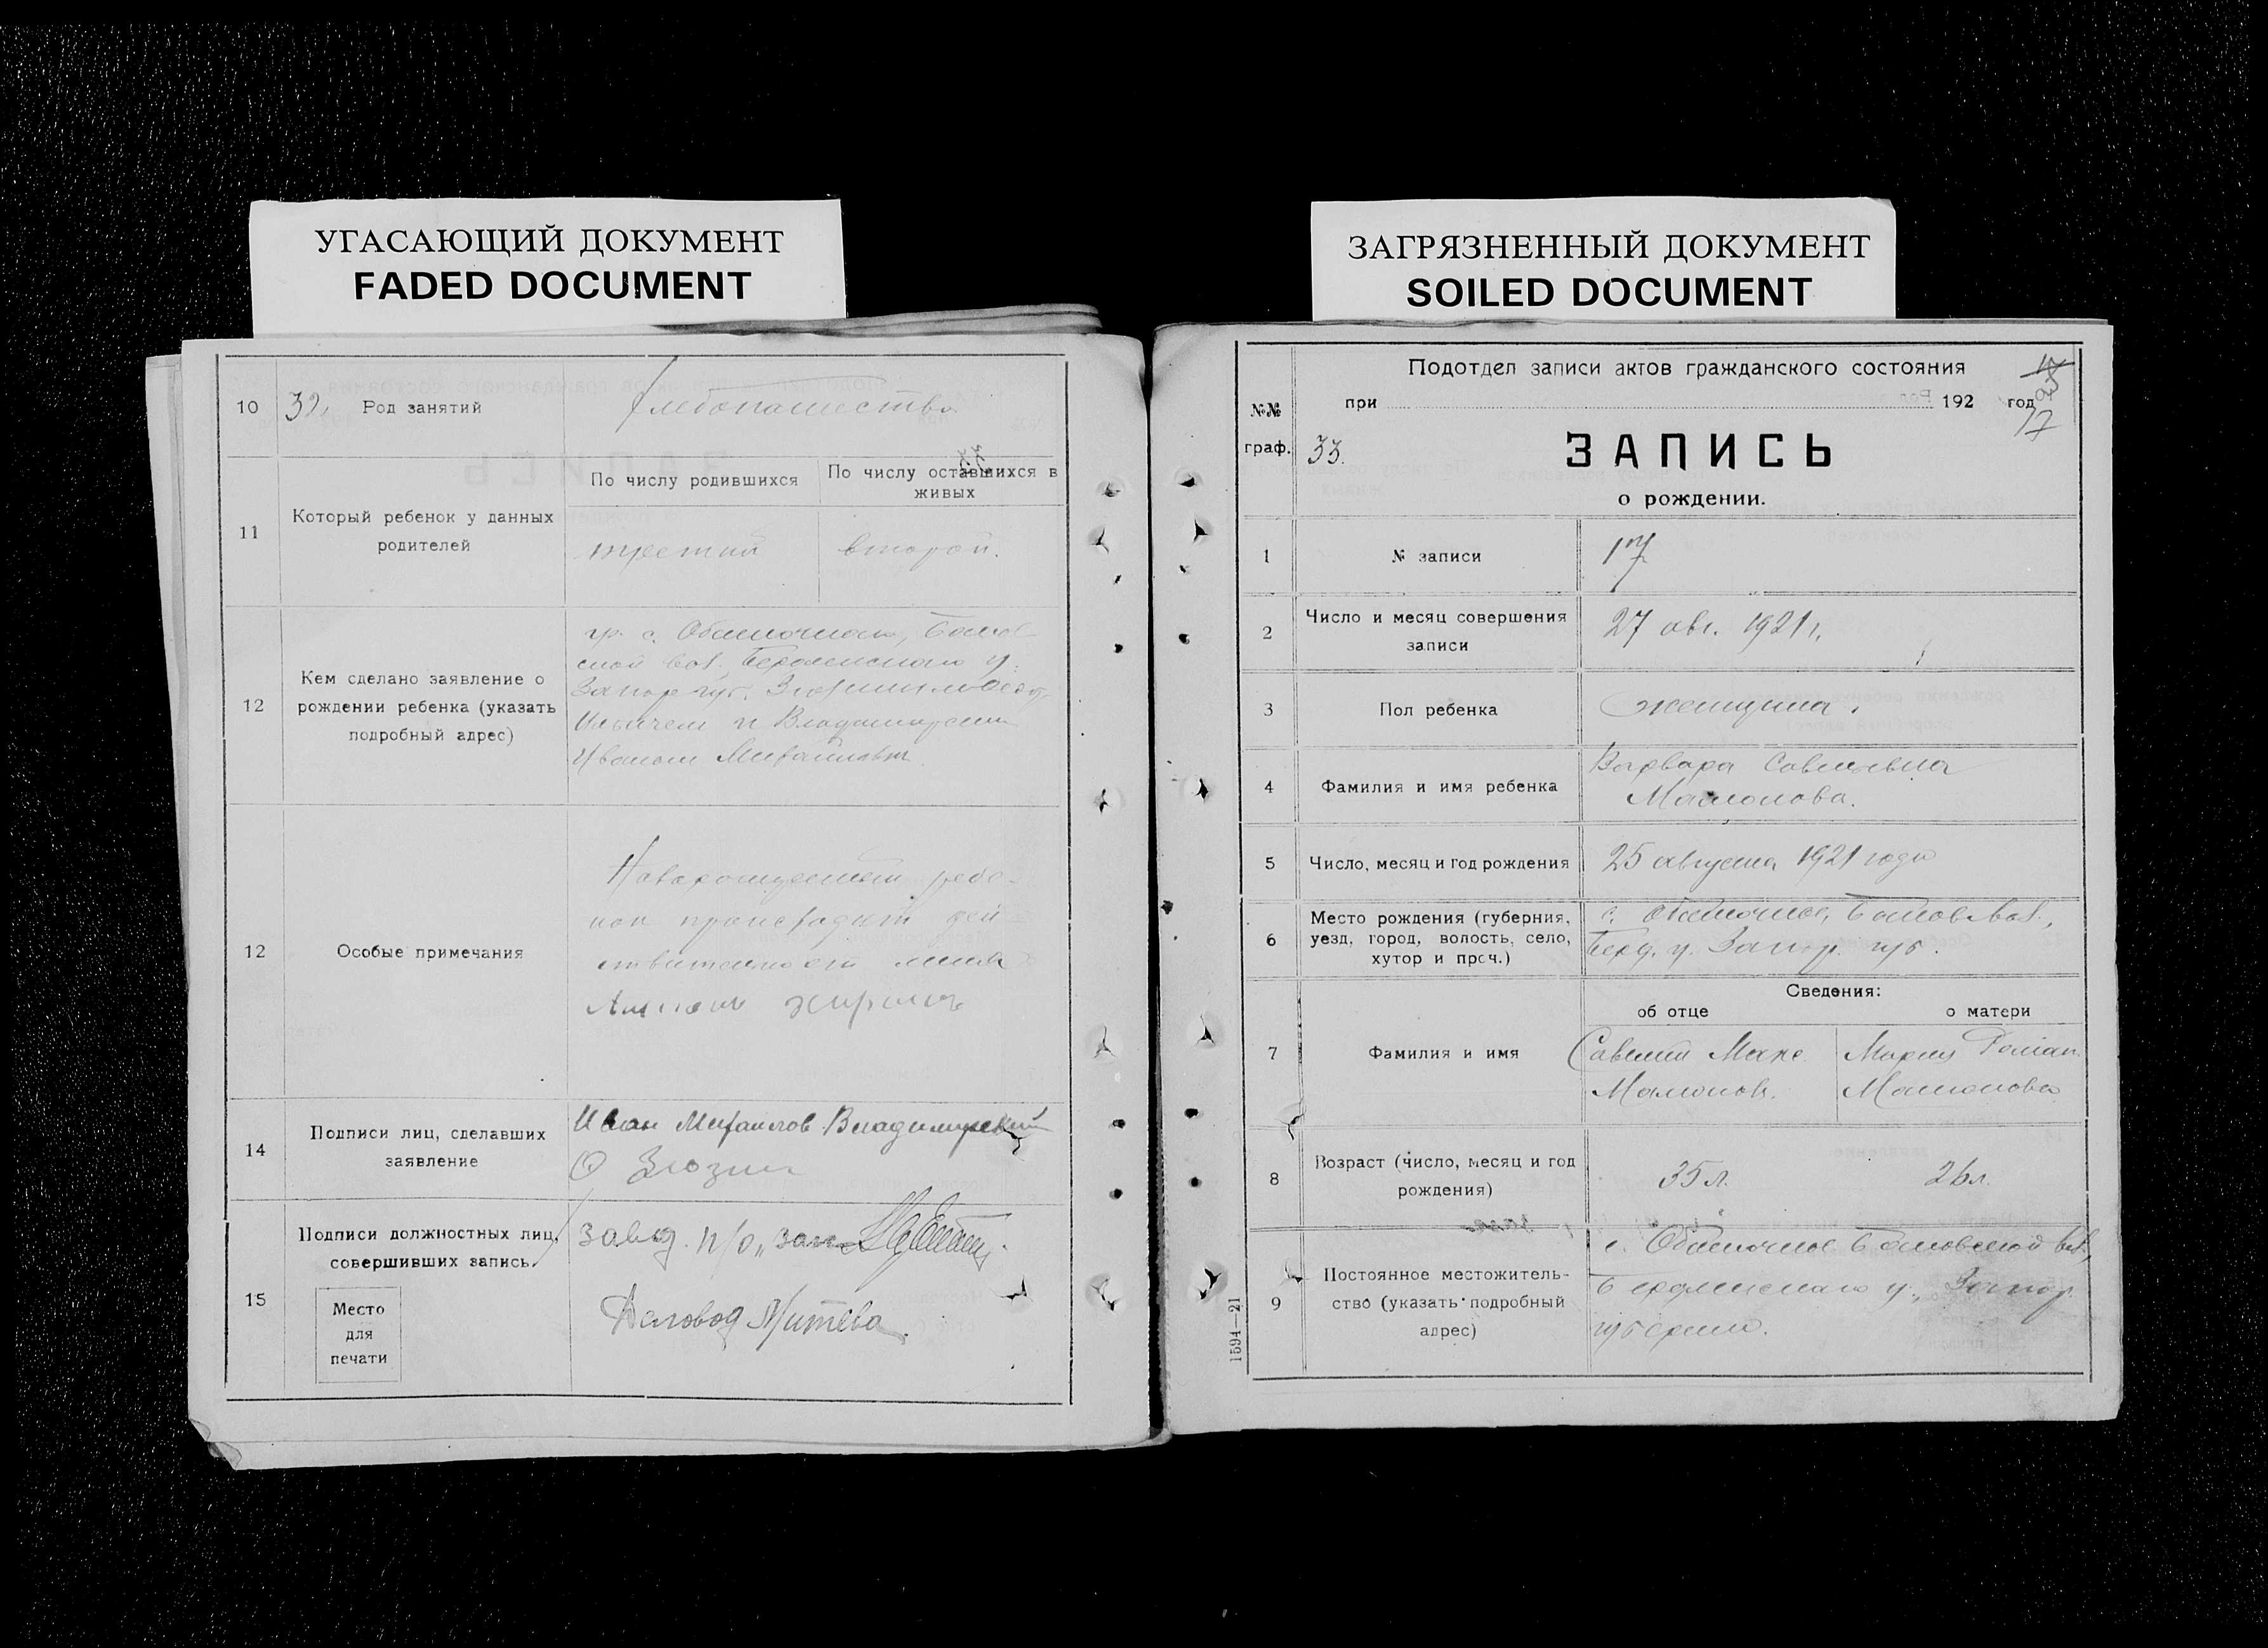 УГАСАЮЩИЙ ДОКУМЕНТ
FADED DOCUMENT
10 32. Род занятий Хлебопашество
11 Который ребенок у данных родителей
По числу родившихся
По числу оставшихся в живых
33
третий
второй.
12 Кем сделано заявление о рождении ребенка (указать подробный адрес)
гр. с. Обиточнаго,
ской вол. Бердянскаго у.
Запор губ.
и Владимирским
Иваном Михайлович
12 Особые примечания
ребе-
нок происходит дей-
ствительно от
14 Подписи лиц, сделавших заявление
Иван Михаилов Владимирский
О Зюзин
15 Подписи должностных лиц, совершивших запись.
Завед. п/о „
Деловод Митева
Место
для
печати
ЗАГРЯЗНЕННЫЙ ДОКУМЕНТ
SOILED DOCUMENT
№№ граф.
33.
Подотдел записи актов гражданского состояния
при 192 год
17
ЗАПИСЬ
о рождении.
1 № записи 17
2 Число и месяц совершения записи 27 авг. 1921 г.
3 Пол ребенка женщина.
4 Фамилия и имя ребенка
Варвара Савельевна
Мамонова.
5 Число, месяц и год рождения 25 августа 1921 года
6 Место рождения (губерния, уезд, город, волость, село, хутор и проч.)
с. Обиточное, вол.,
Берд. у. Запор. губ.
Сведения:
об отце
о матери
7 Фамилия и имя
Савелий Макс.
Мамонов.
Мария Роман.
Мамонова
8 Возраст (число, месяц и год рождения) 35 л. 26 л.
9 Постоянное местожительство (указать подробный адрес)
с. Обиточное вол.,
Бердянскаго у., Запор.
губернии.
1594—21